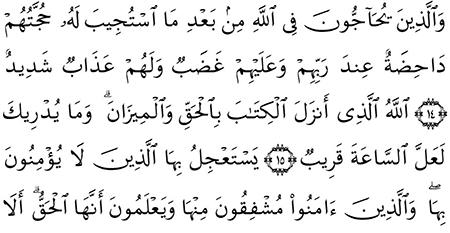 وَٱلَّذِينَ يُحَآجُّونَ فِى ٱللَّهِ مِنۢ بَعْدِ مَا ٱسْتُجِيبَ لَهُۥ حُجَّتُهُمْ
دَاحِضَةٌ عِندَ رَبِّهِمْ وَعَلَيْهِمْ غَضَبٌ وَلَهُمْ عَذَابٌ شَدِيدٌ
﴿١٤﴾ ٱللَّهُ ٱلَّذِى أَنزَلَ ٱلْكِتَـٰبَ بِٱلْحَقِّ وَٱلْمِيزَانَ ۗ وَمَا يُدْرِيكَ
لَعَلَّ ٱلسَّاعَةَ قَرِيبٌ ﴿١٥﴾ يَسْتَعْجِلُ بِهَا ٱلَّذِينَ لَا يُؤْمِنُونَ
بِهَا ۖ وَٱلَّذِينَ ءَامَنُوا۟ مُشْفِقُونَ مِنْهَا وَيَعْلَمُونَ أَنَّهَا ٱلْحَقُّ ۗ أَلَآ